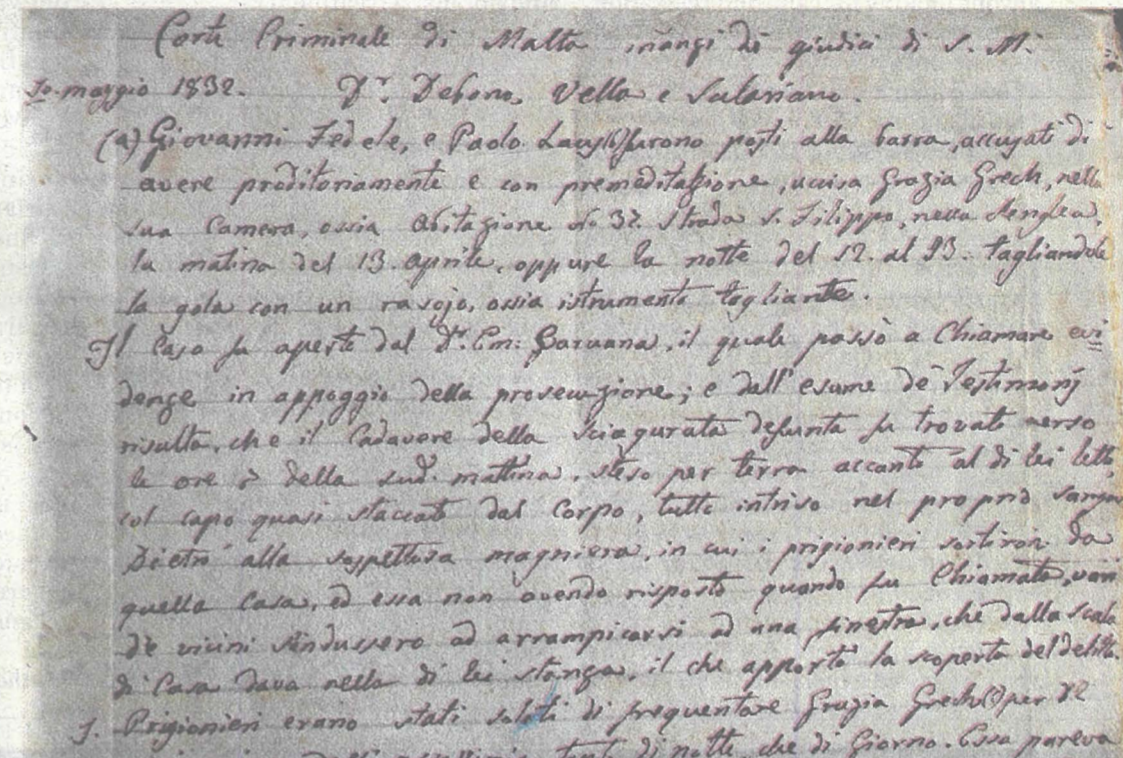 Corte Criminale di Malta inanzi di giudici di S. M.
10. maggio 1832. Dr. Debono, Vella e Salariano.
(a) Giovanni Fedele, e Paolo furono posti alla barra, accusati di
avere proditoriamente e con premeditazione, uccisa Grazia Grech, nella
sua Camera, ossia Abitazione No 32. Strada S. Filippo, nella Senglea,
la matina del 13. Aprile, oppure la notte del 12. al 13. tagliandole
la gola con un rasojo, ossia istrumento tagliante.
Il Caso fu aperto dal Dr. Em: Caruana, il quale passò a Chiamare evi
denze in appoggio della prosecuzione; e dall'esame de' Testimonj
risulta, che il Cadavere della sciagurata defunta fu trovato verso
le ore della sud. mattina, steso per terra accanto al di lei letto
col capo quasi staccato dal Corpo, tutto intriso nel proprio sangue
Dietro alla sospettosa magniera, in cui i prigionieri sortiron da
quella Casa, ed essa non avendo risposto quando fu Chiamata, varii
de vicini s'indussero ad arrampicarsi ad una finestra, che dalla scala
di Casa dava nella di lei stanza, il che apportò la scoperta del delitto.
I. Prigionieri erano stati soliti di frequentare Grazia Grech per
tanto di notte, che di Giorno. Essa pareva